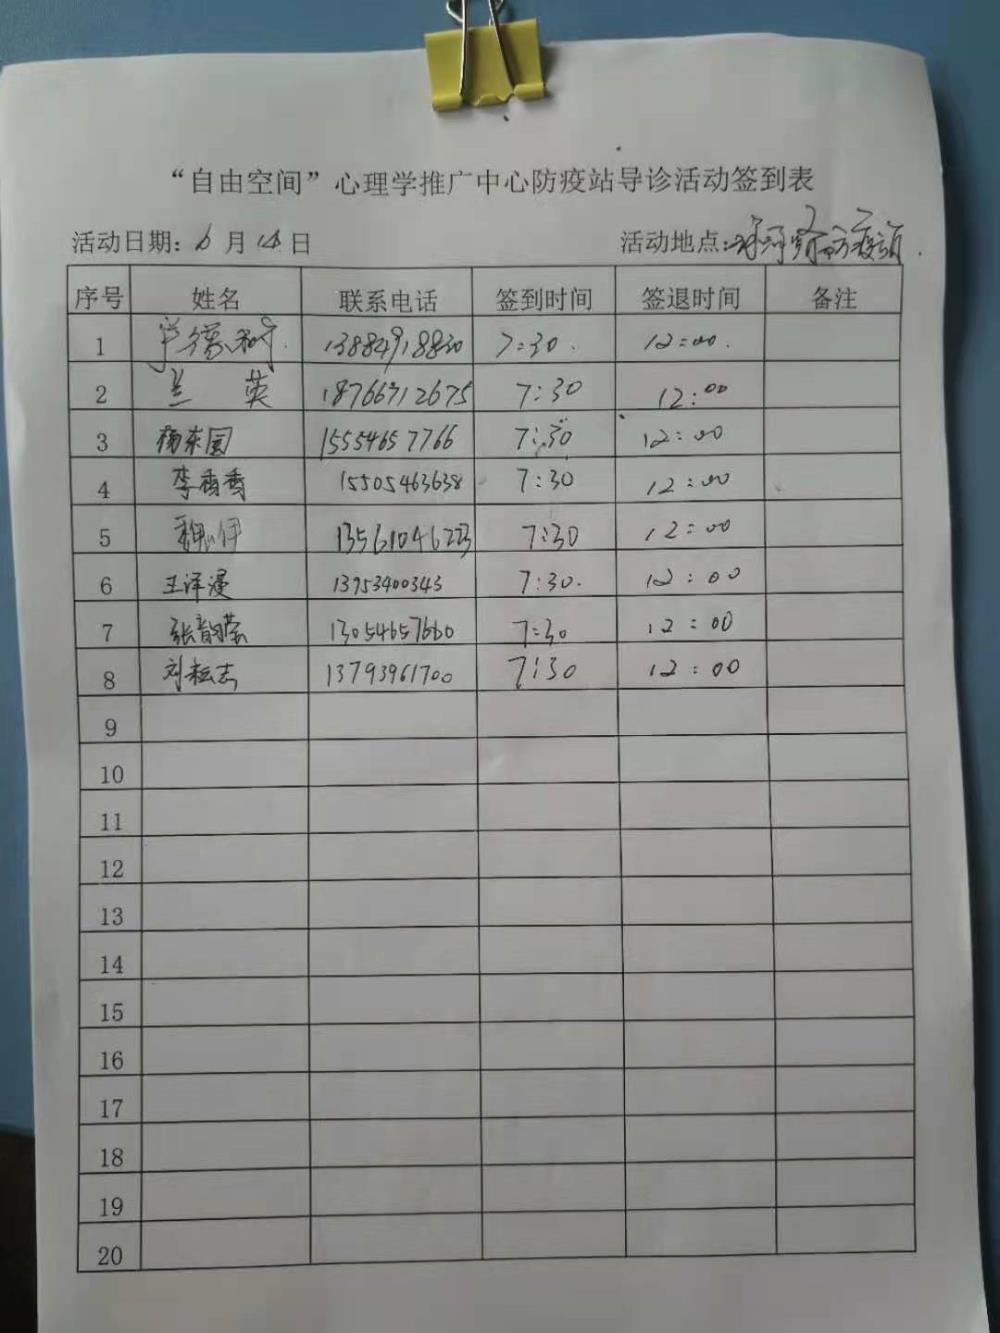 “自由空间”心理学推广中心防疫站导诊活动签到表
活动日期：6月14日 活动地点：
序号 姓名 联系电话 签到时间 签退时间 备注
1 13884918830 7:30. 12:00.
2 兰英 18766712675 7:30 12:00
3 杨东国 15554657766 7:30 12:00
4 李香香 15505463638 7:30 12:00
5 伊 13561046223 7:30 12:00
6 王泽漫 13953400343 7:30. 12:00
7 张韵莹 13054657660 7:30 12:00
8 刘耘志 13793961700 7:30 12:00
9
10
11
12
13
14
15
16
17
18
19
20